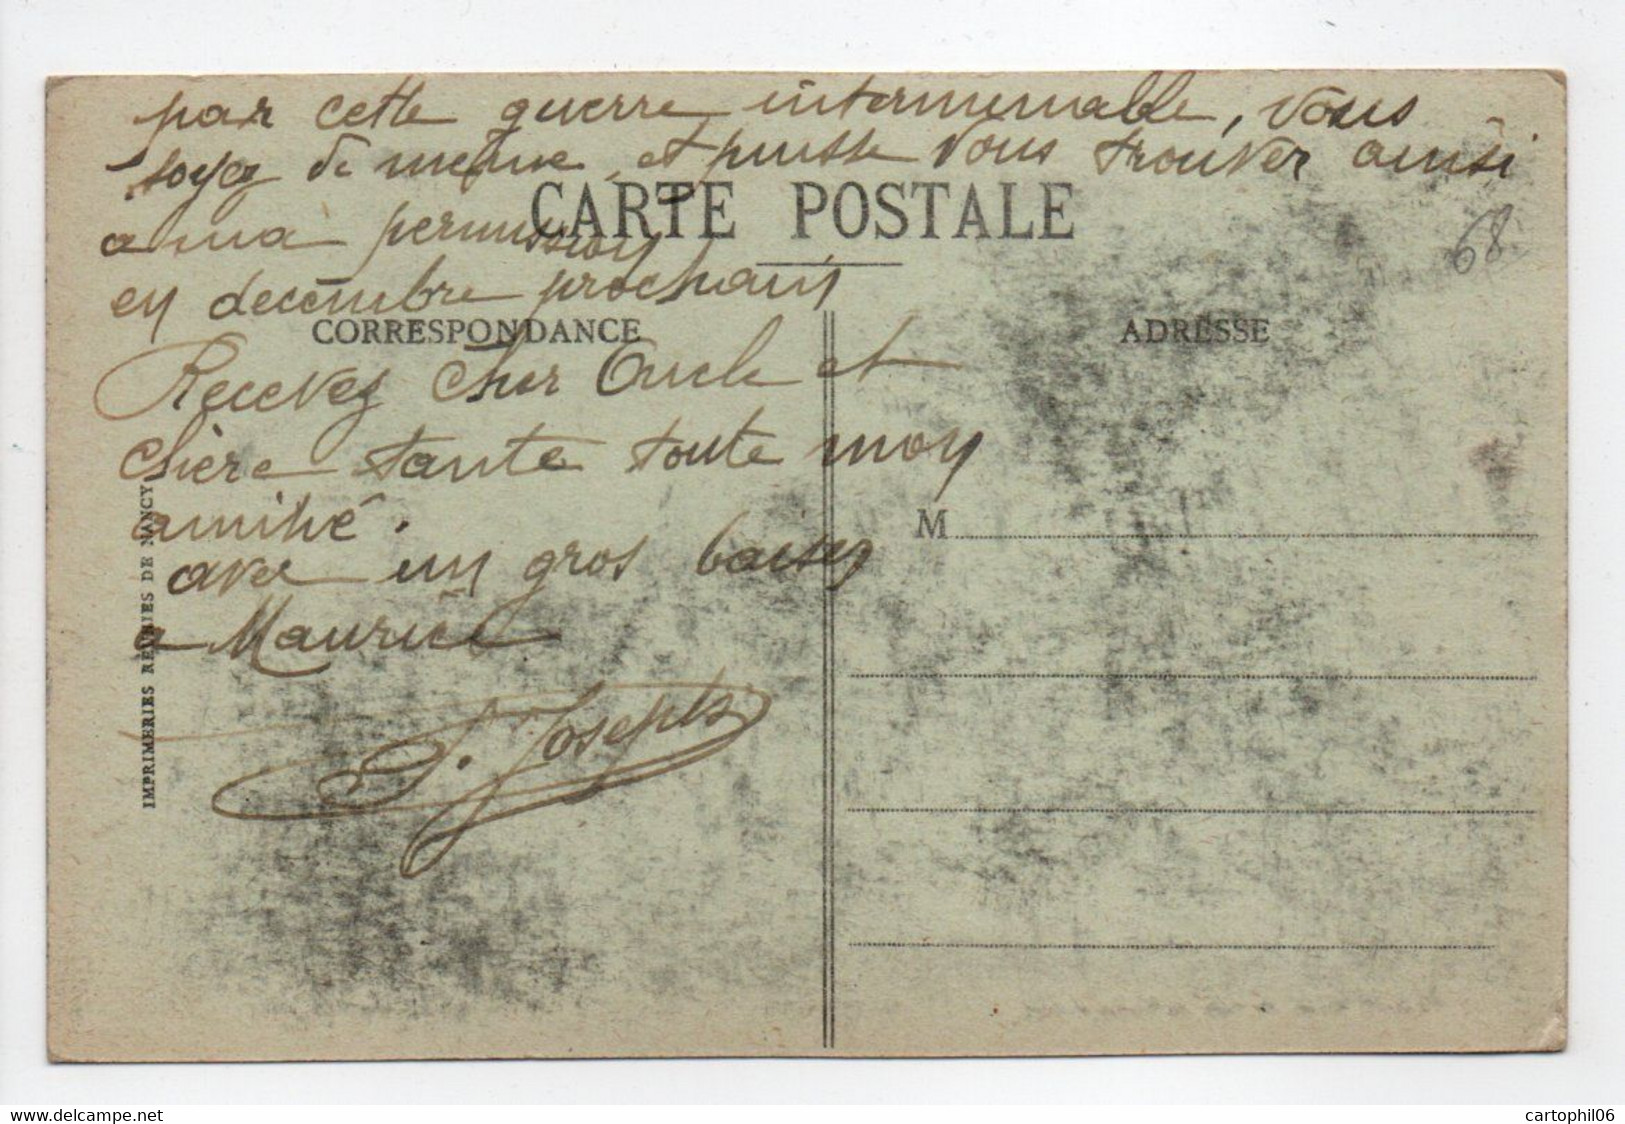 par cette guerre interminable, vous
soyez de même, et puisse vous trouver ainsi
CARTE POSTALE
a ma permission
68
en decembre prochain
CORRESPONDANCE
ADRESSE
Recevez cher Oncle et
chère tante toute mon
amitié.
M
avec un gros baisez
a Maurice
J. Joseph
IMPRIMERIES RÉUNIES DE NANCY
www.delcampe.net
cartophil06